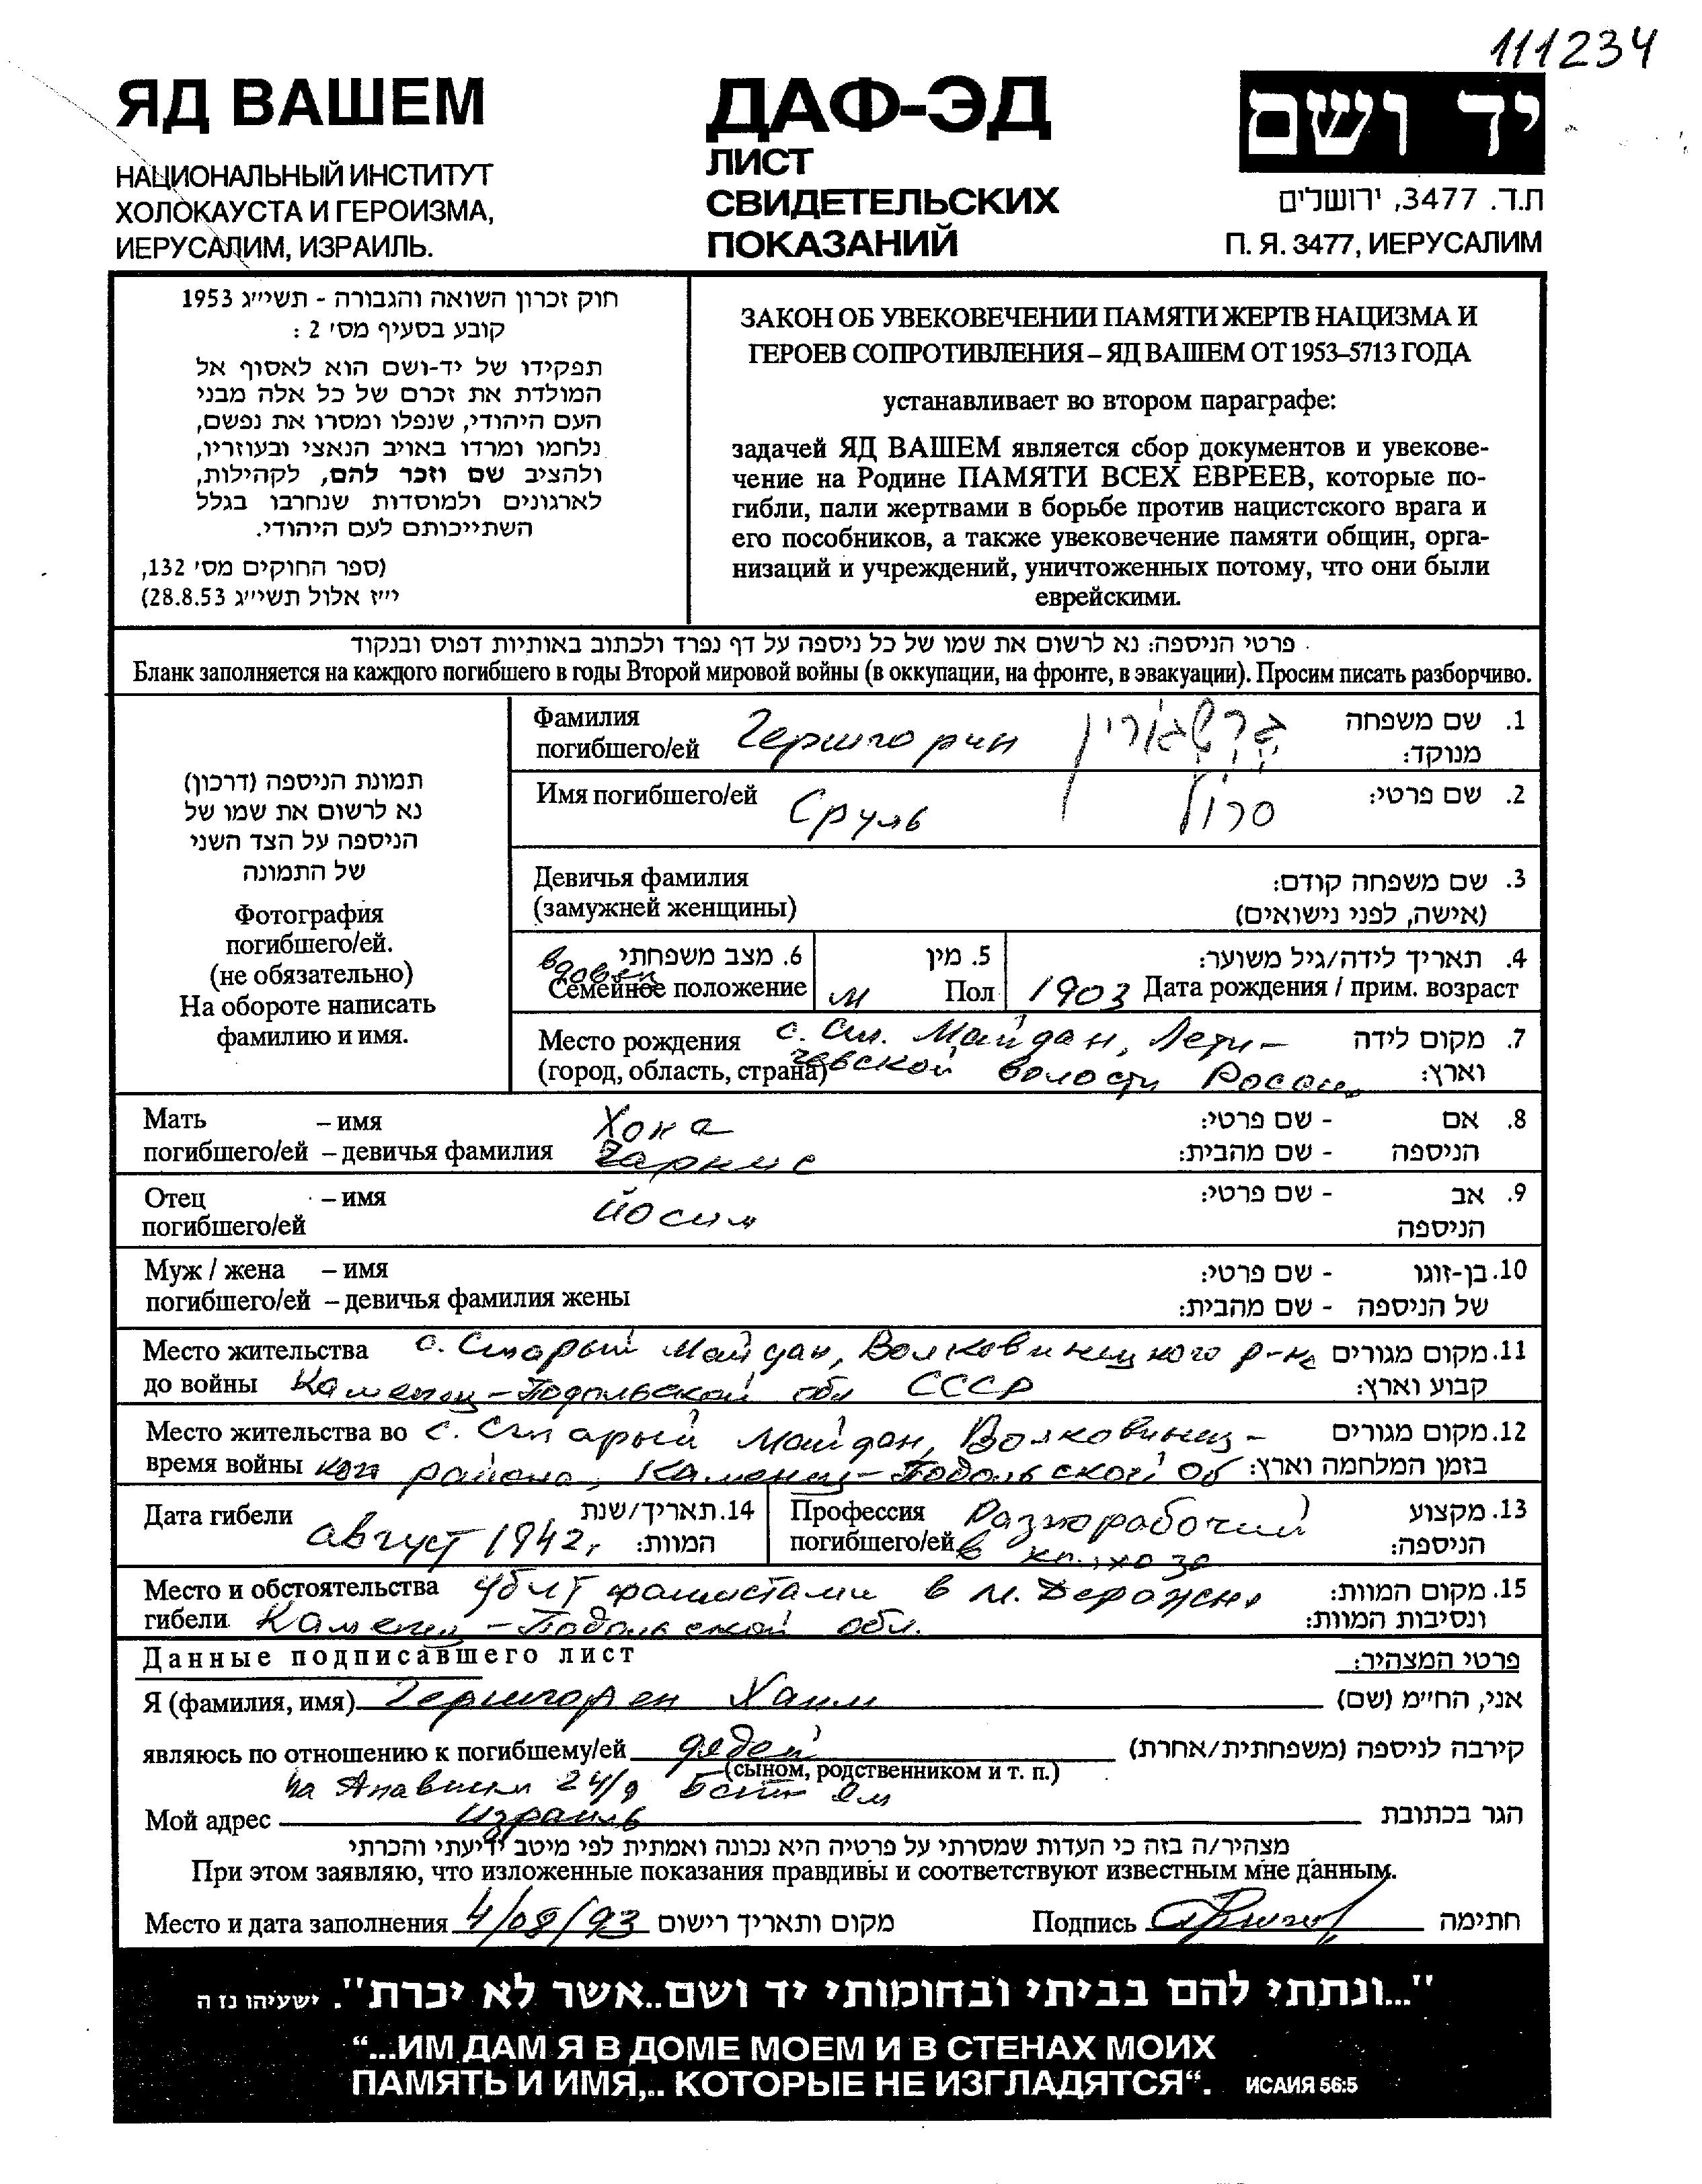 111234
ЯД ВАШЕМ
НАЦИОНАЛЬНЫЙ ИНСТИТУТ
ХОЛОКАУСТА И ГЕРОИЗМА,
ИЕРУСАЛИМ, ИЗРАИЛЬ.
ДАФ-ЭД
ЛИСТ
СВИДЕТЕЛЬСКИХ
ПОКАЗАНИЙ
יד ושם
ת.ד. 3477, ירושלים
П. Я. 3477, ИЕРУСАЛИМ
חוק זכרון השואה והגבורה - תשי״ג 1953
קובע בסעיף מס׳ 2 :
תפקידו של יד-ושם הוא לאסוף אל
המולדת את זכרם של כל אלה מבני
העם היהודי, שנפלו ומסרו את נפשם,
נלחמו ומרדו באויב הנאצי ובעוזריו,
ולהציב שם וזכר להם, לקהילות,
לארגונים ולמוסדות שנחרבו בגלל
השתייכותם לעם היהודי.
(ספר החוקים מס׳ 132,
י״ז אלול תשי״ג 28.8.53)
ЗАКОН ОБ УВЕКОВЕЧЕНИИ ПАМЯТИ ЖЕРТВ НАЦИЗМА И
ГЕРОЕВ СОПРОТИВЛЕНИЯ – ЯД ВАШЕМ ОТ 1953–5713 ГОДА
устанавливает во втором параграфе:
задачей ЯД ВАШЕМ является сбор документов и увекове-
чение на Родине ПАМЯТИ ВСЕХ ЕВРЕЕВ, которые по-
гибли, пали жертвами в борьбе против нацистского врага и
его пособников, а также увековечение памяти общин, орга-
низаций и учреждений, уничтоженных потому, что они были
еврейскими.
פרטי הניספה: נא לרשום את שמו של כל ניספה על דף נפרד ולכתוב באותיות דפוס ובנקוד
Бланк заполняется на каждого погибшего в годы Второй мировой войны (в оккупации, на фронте, в эвакуации). Просим писать разборчиво.
תמונת הניספה (דרכון)
נא לרשום את שמו של
הניספה על הצד השני
של התמונה
Фотография
погибшего/ей.
(не обязательно)
На обороте написать
фамилию и имя.
Фамилия
погибшего/ей Гершгорин גרשגורין 1. שם משפחה
מנוקד:
Имя погибшего/ей Сруль סרול 2. שם פרטי:
Девичья фамилия 3. שם משפחה קודם:
(замужней женщины) (אישה, לפני נישואים)
вдовец 6. מצב משפחתי
Семейное положение
5. מין
м Пол
4. תאריך לידה/גיל משוער:
1903 Дата рождения / прим. возраст
Место рождения с. Ст. Майдан, Лети- 7. מקום לידה
(город, область, страна) чевской волости Росси וארץ:
Мать – имя Хона 8. אם - שם פרטי:
погибшего/ей – девичья фамилия Гаркис הניספה - שם מהבית:
Отец – имя Йосип 9. אב - שם פרטי:
погибшего/ей הניספה
Муж / жена – имя 10. בן-זוגו - שם פרטי:
погибшего/ей – девичья фамилия жены של הניספה - שם מהבית:
Место жительства с. Старый Майдан, Волковинецкого р-на 11. מקום מגורים
до войны Каменец-Подольской обл СССР קבוע וארץ:
Место жительства во с. Старый Майдан, Волковинец- 12. מקום מגורים
время войны кого района, Каменец-Подольской об בזמן המלחמה וארץ:
Дата гибели август 1942г. 14. תאריך/שנת
המוות:
Профессия Разнорабочий 13. מקצוע
погибшего/ей в колхозе הניספה:
Место и обстоятельства убит фашистами в м. Деражня 15. מקום המוות:
гибели Каменец-Подольской обл. ונסיבות המוות:
Данные подписавшего лист פרטי המצהיר:
Я (фамилия, имя) Гершгорен Хаим אני, החי״מ (שם)
являюсь по отношению к погибшему/ей дядей קירבה לניספה (משפחתית/אחרת)
(сыном, родственником и т. п.)
24/9 Бат Ям
Мой адрес Израиль הגר בכתובת
מצהיר/ה בזה כי העדות שמסרתי על פרטיה היא נכונה ואמתית לפי מיטב ידיעתי והכרתי
При этом заявляю, что изложенные показания правдивы и соответствуют известным мне данным.
Место и дата заполнения 4/08/93 מקום ותאריך רישום Подпись חתימה
"...ונתתי להם בביתי ובחומותי יד ושם..אשר לא יכרת". ישעיהו נז ה
“...ИМ ДАМ Я В ДОМЕ МОЕМ И В СТЕНАХ МОИХ
ПАМЯТЬ И ИМЯ,.. КОТОРЫЕ НЕ ИЗГЛАДЯТСЯ“. ИСАИЯ 56:5